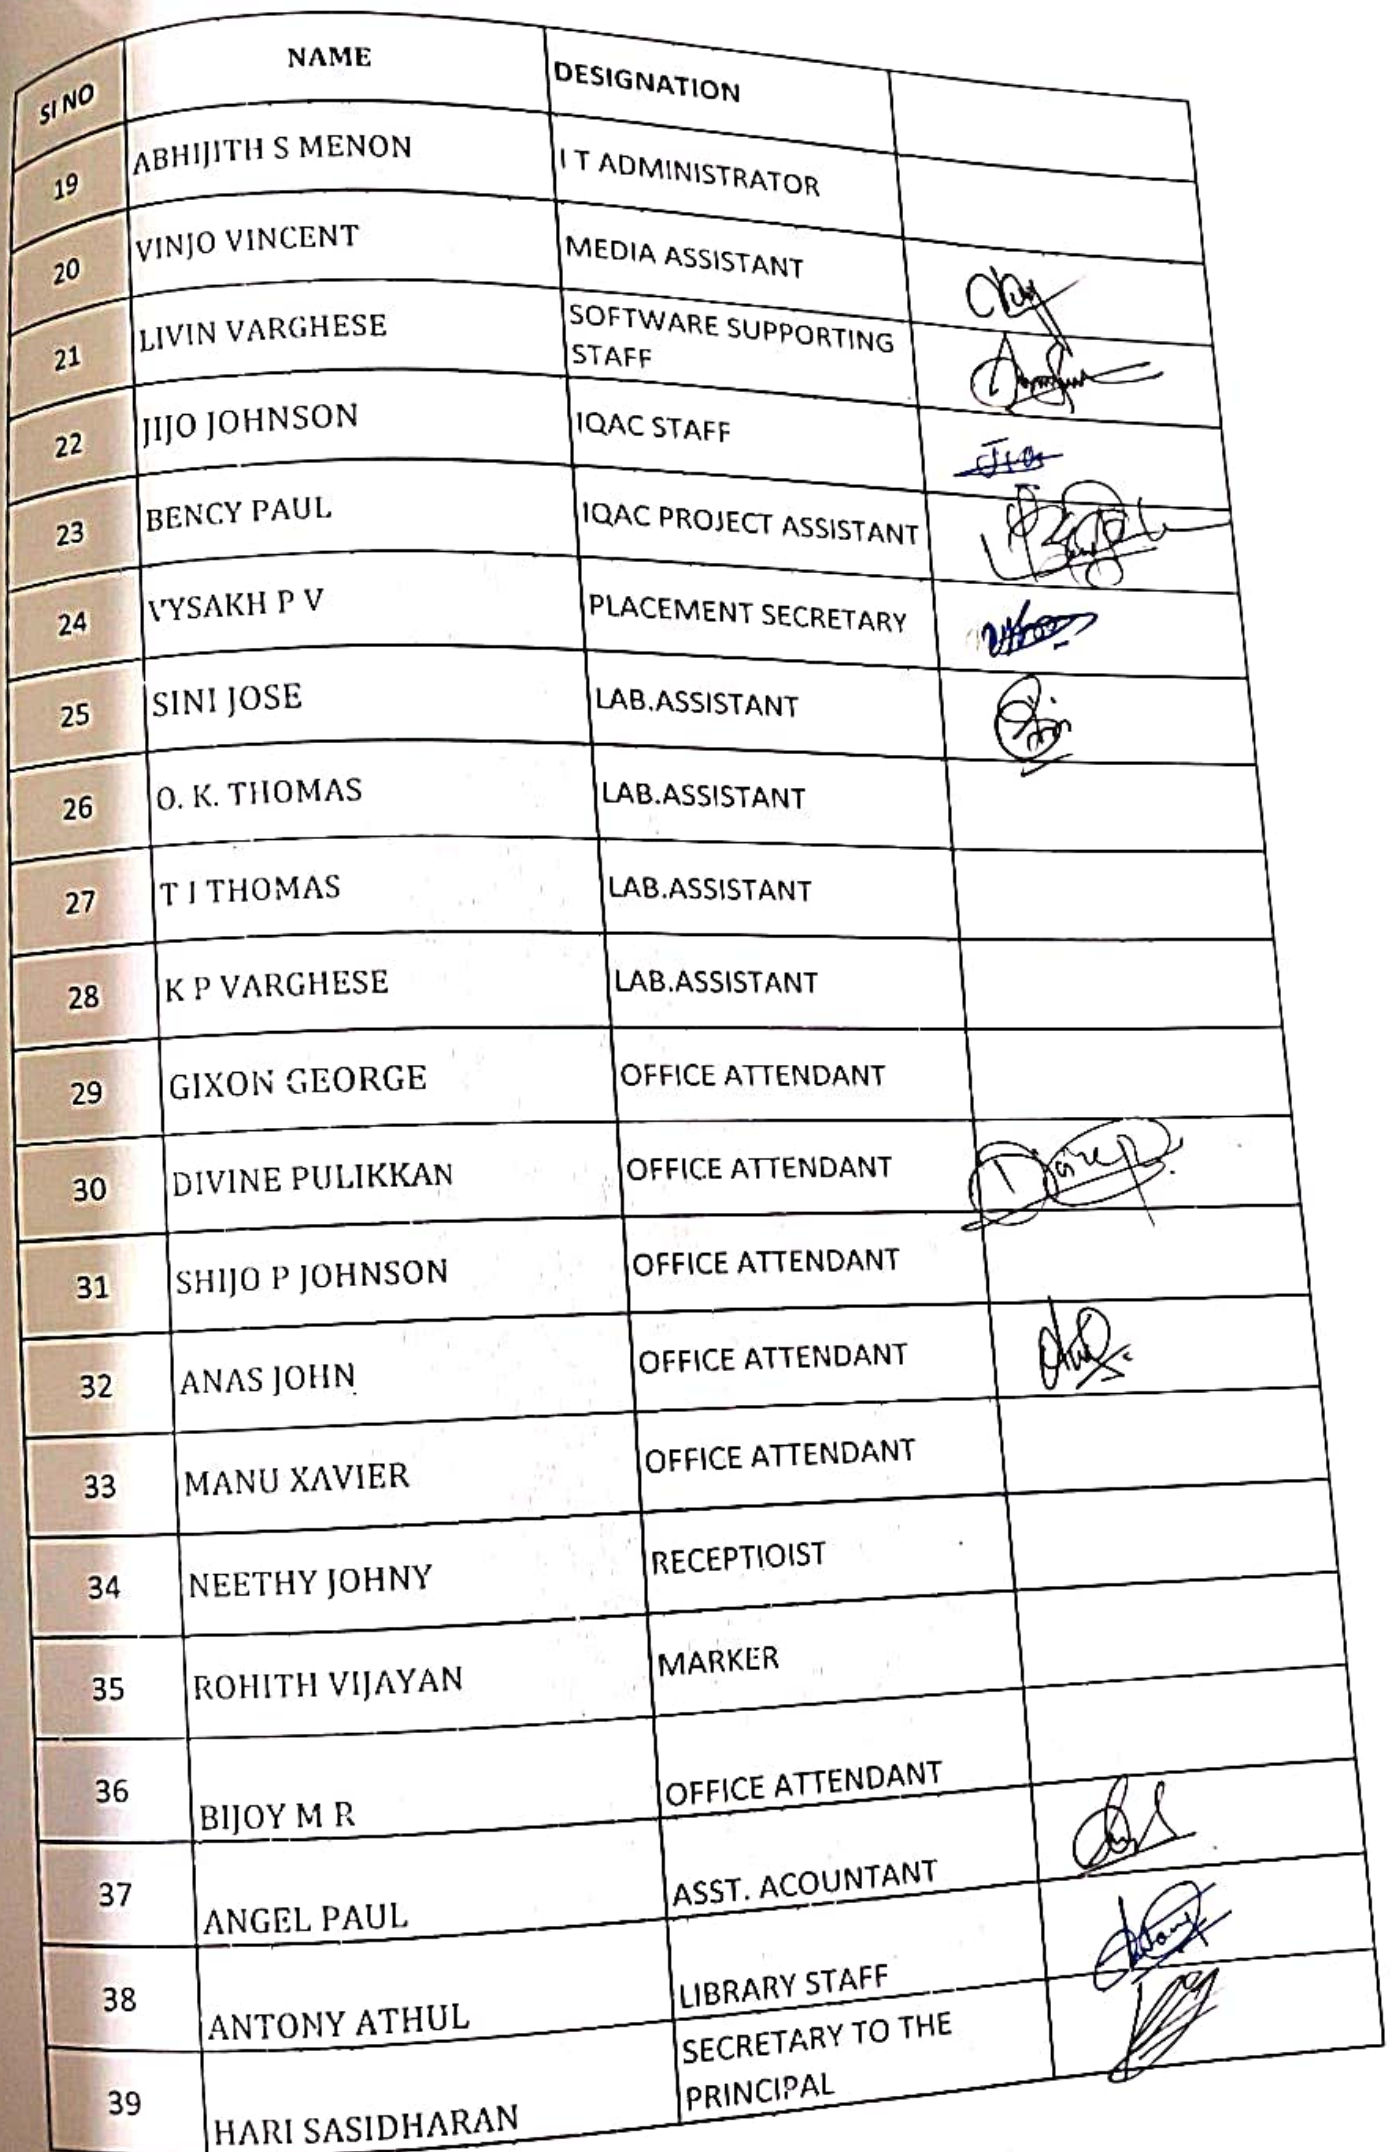 SI NO NAME DESIGNATION
19 ABHIJITH S MENON I T ADMINISTRATOR
20 VINJO VINCENT MEDIA ASSISTANT
21 LIVIN VARGHESE SOFTWARE SUPPORTING
STAFF
22 JIJO JOHNSON IQAC STAFF
23 BENCY PAUL IQAC PROJECT ASSISTANT
24 VYSAKH P V PLACEMENT SECRETARY
25 SINI JOSE LAB.ASSISTANT
26 O. K. THOMAS LAB.ASSISTANT
27 T J THOMAS LAB.ASSISTANT
28 K P VARGHESE LAB.ASSISTANT
29 GIXON GEORGE OFFICE ATTENDANT
30 DIVINE PULIKKAN OFFICE ATTENDANT
31 SHIJO P JOHNSON OFFICE ATTENDANT
32 ANAS JOHN OFFICE ATTENDANT
33 MANU XAVIER OFFICE ATTENDANT
34 NEETHY JOHNY RECEPTIOIST
35 ROHITH VIJAYAN MARKER
36 BIJOY M R OFFICE ATTENDANT
37 ANGEL PAUL ASST. ACOUNTANT
38 ANTONY ATHUL LIBRARY STAFF
39 HARI SASIDHARAN SECRETARY TO THE
PRINCIPAL